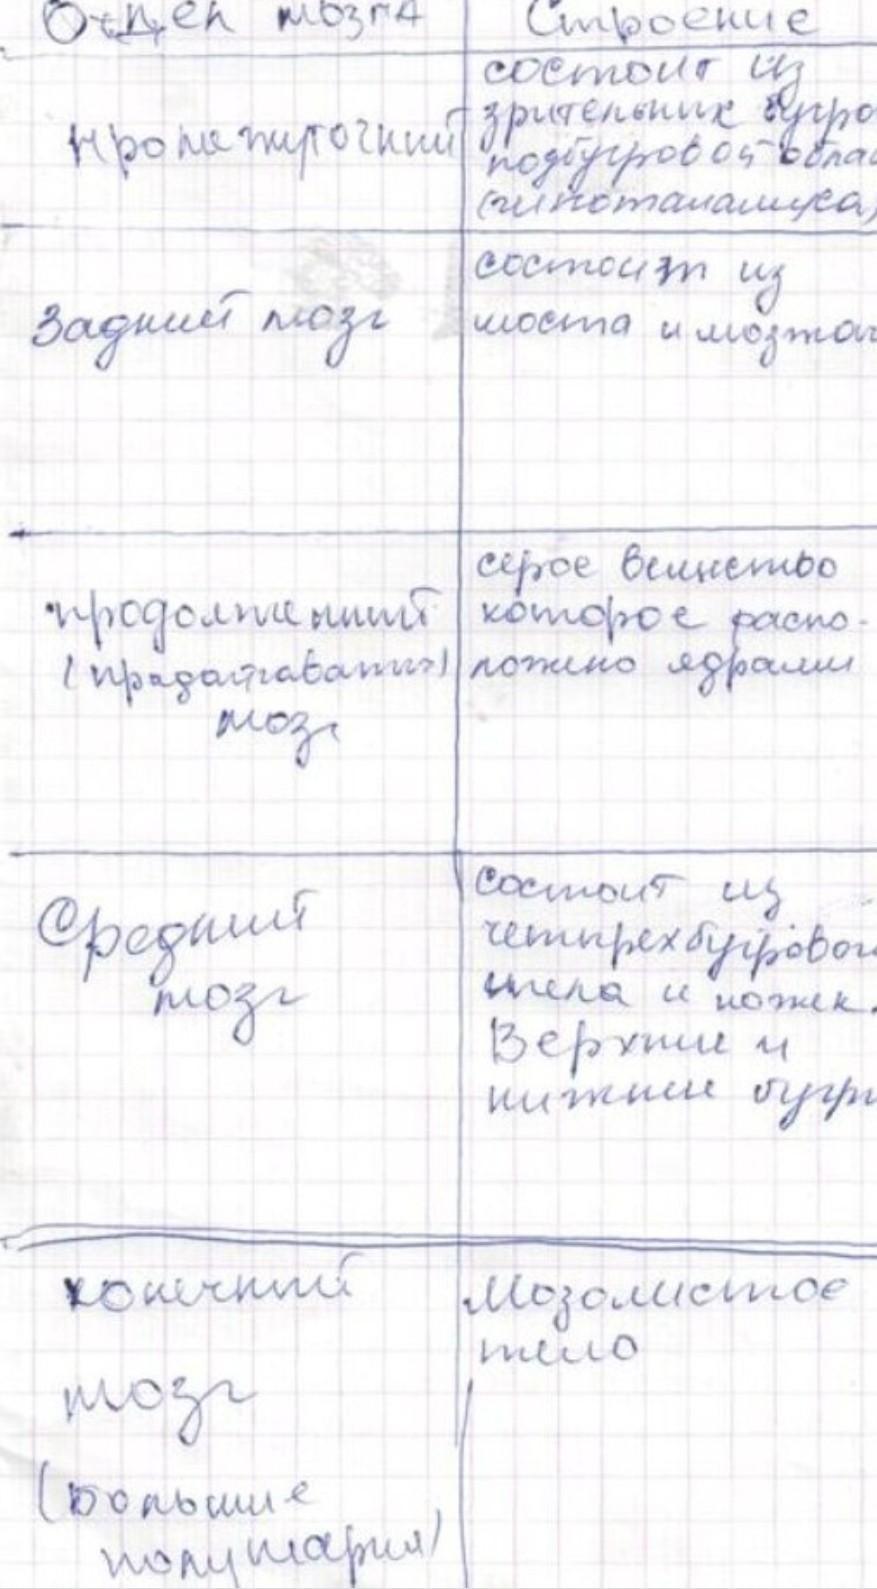 Отдел мозга
Строение
промежуточный
состоит из
зрительных бугро
подбугровой облас
(гипоталамуса)
Задний мозг
состоит из
моста и мозжеч
продолженный
мозг
серое вещество
которое распо-
ложено ядрами
Средний
мозг
состоит из
четырехбугрового
тела и ножек.
Верхние и
нижние бугры
конечный
мозг
(большие
полушария)
Мозолистое
тело